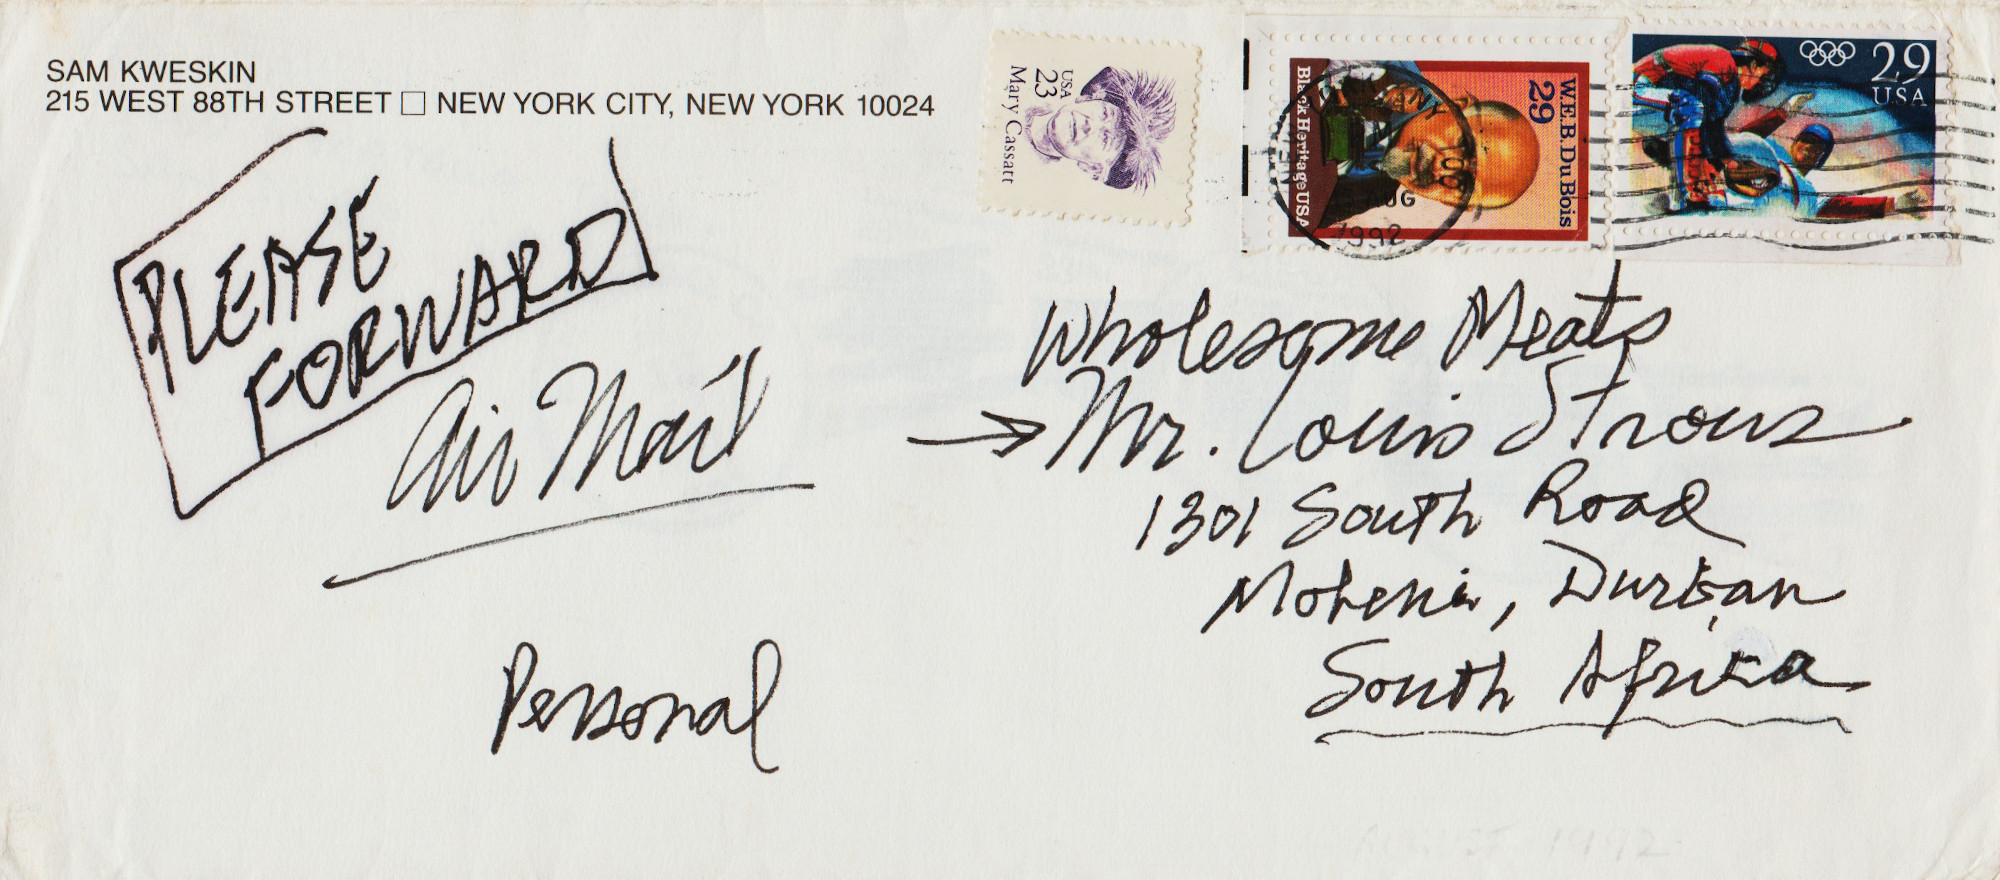 SAM KWESKIN
215 WEST 88TH STREET □ NEW YORK CITY, NEW YORK 10024
USA
23
Mary Cassatt
W.E.B. Du Bois
29
Black Heritage USA
29
USA
AUG
1992
PLEASE
FORWARD
Air Mail
Personal
Wholesome Meats
→ Mr. Louis Strous
1301 South Road
Durban
South Africa
AUGUST 1992